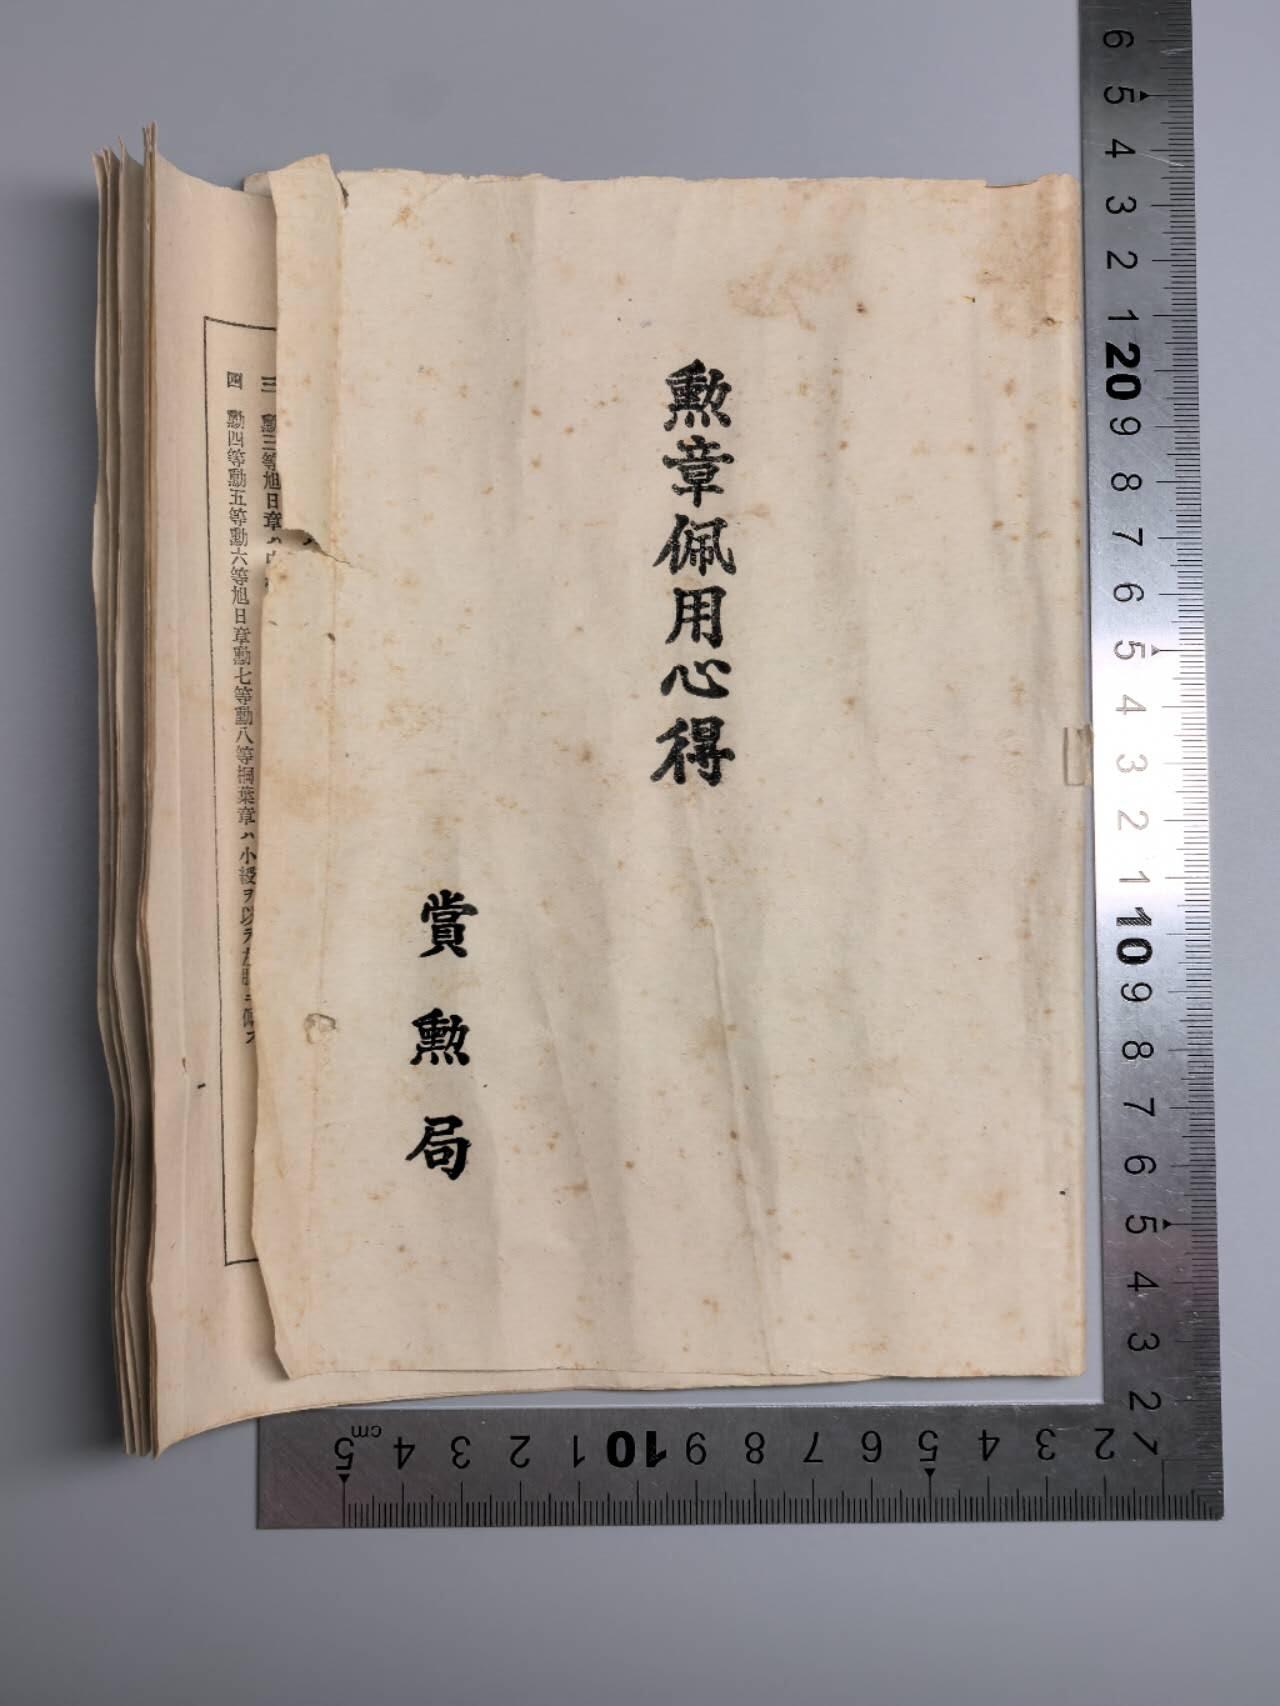 勲章佩用心得
賞勲局
三 勲三等旭日章ハ
四 勲四等勲五等勲六等旭日章勲七等勲八等桐葉章ハ小綬ヲ以テ左肋ニ佩フ
6 5 4 3 2 1 20 9 8 7 6 5 4 3 2 1 10 9 8 7 6 5 4 3 2
5 cm 4 3 2 1 10 9 8 7 6 5 4 3 2